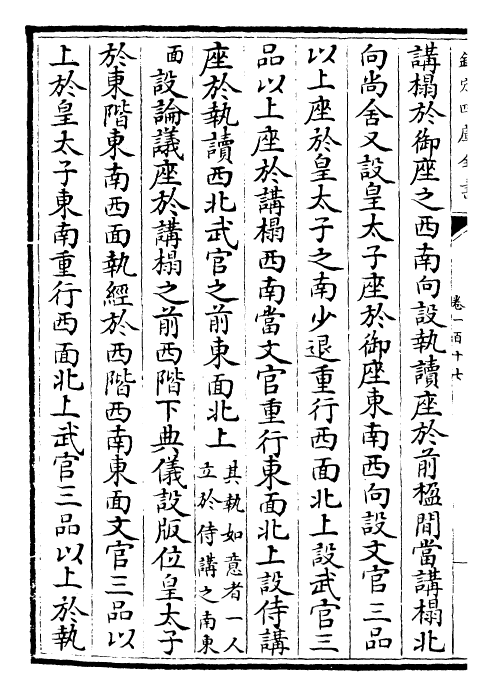 欽定四庫全書
卷一百十七
講榻於御座之西南向設執讀座於前楹間當講榻北
向尚舍又設皇太子座於御座東南西向設文官三品
以上座於皇太子之南少退重行西面北上設武官三
品以上座於講榻西南當文官重行東面北上設侍講
座於執讀西北武官之前東面北上其執如意者一人立於侍講之南東
面設論議座於講榻之前西階下典儀設版位皇太子
於東階東南西面執經於西階西南東面文官三品以
上於皇太子東南重行西面北上武官三品以上於執